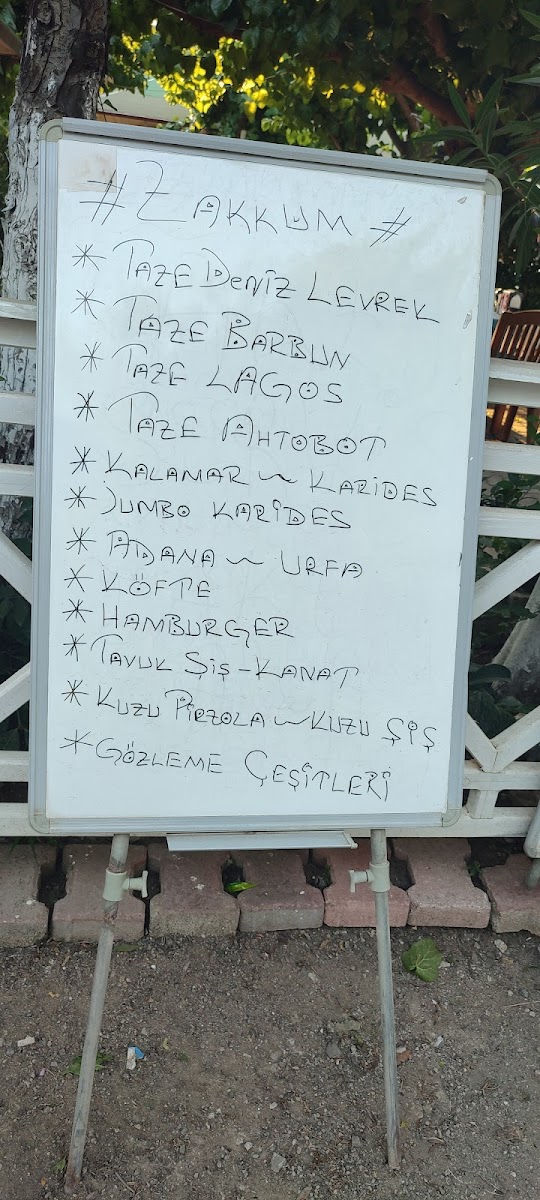 # ZAKKUM #
* TAZE DENİZ LEVREK
* TAZE BARBUN
* TAZE LAGOS
* TAZE AHTOBOT
* KALAMAR ~ KARİDES
* JUMBO KARİDES
* ADANA ~ URFA
* KÖFTE
* HAMBURGER
* TAVUK ŞİŞ - KANAT
* KUZU PİRZOLA ~ KUZU ŞİŞ
* GÖZLEME ÇEŞİTLERİ